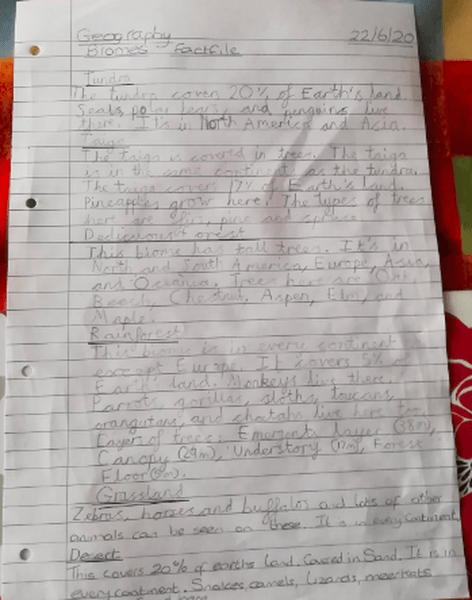 Geography 22/6/20
Biomes Factfile
Tundra
The tundra covers 20% of Earth's land.
Seals polar bears, and penguins live
there. It's in North America and Asia.
Taiga
The taiga is covered in trees. The taiga
is in the same continent as the tundra.
The taiga covers 17% of Earth's land.
Pineapples grow here. The types of trees
here are fir, pine and spruce
Dediciuous forest
This biome has tall trees. It's in
North and South America, Europe, Asia,
and Oceania. Trees here are Oak,
Beech, Chestnut, Aspen, Elm, and
Maple.
Rainforest
This biome is in every continent
except Europe. It covers 5% of
Earth's land. Monkeys live there.
Parrots, gorillas, sloths, toucans,
orangutans, and cheetahs live here too.
Layers of trees: Emergent layer (38m),
Canopy (29m), Understory (17m), Forest
Floor
Grassland
Zebras, horses and buffalos and lots of other
animals can be seen on these. It is in every continent.
Desert
This covers 20% of earths land. Covered in Sand. It is in
every continent. Snakes, camels, lizards, meerkats